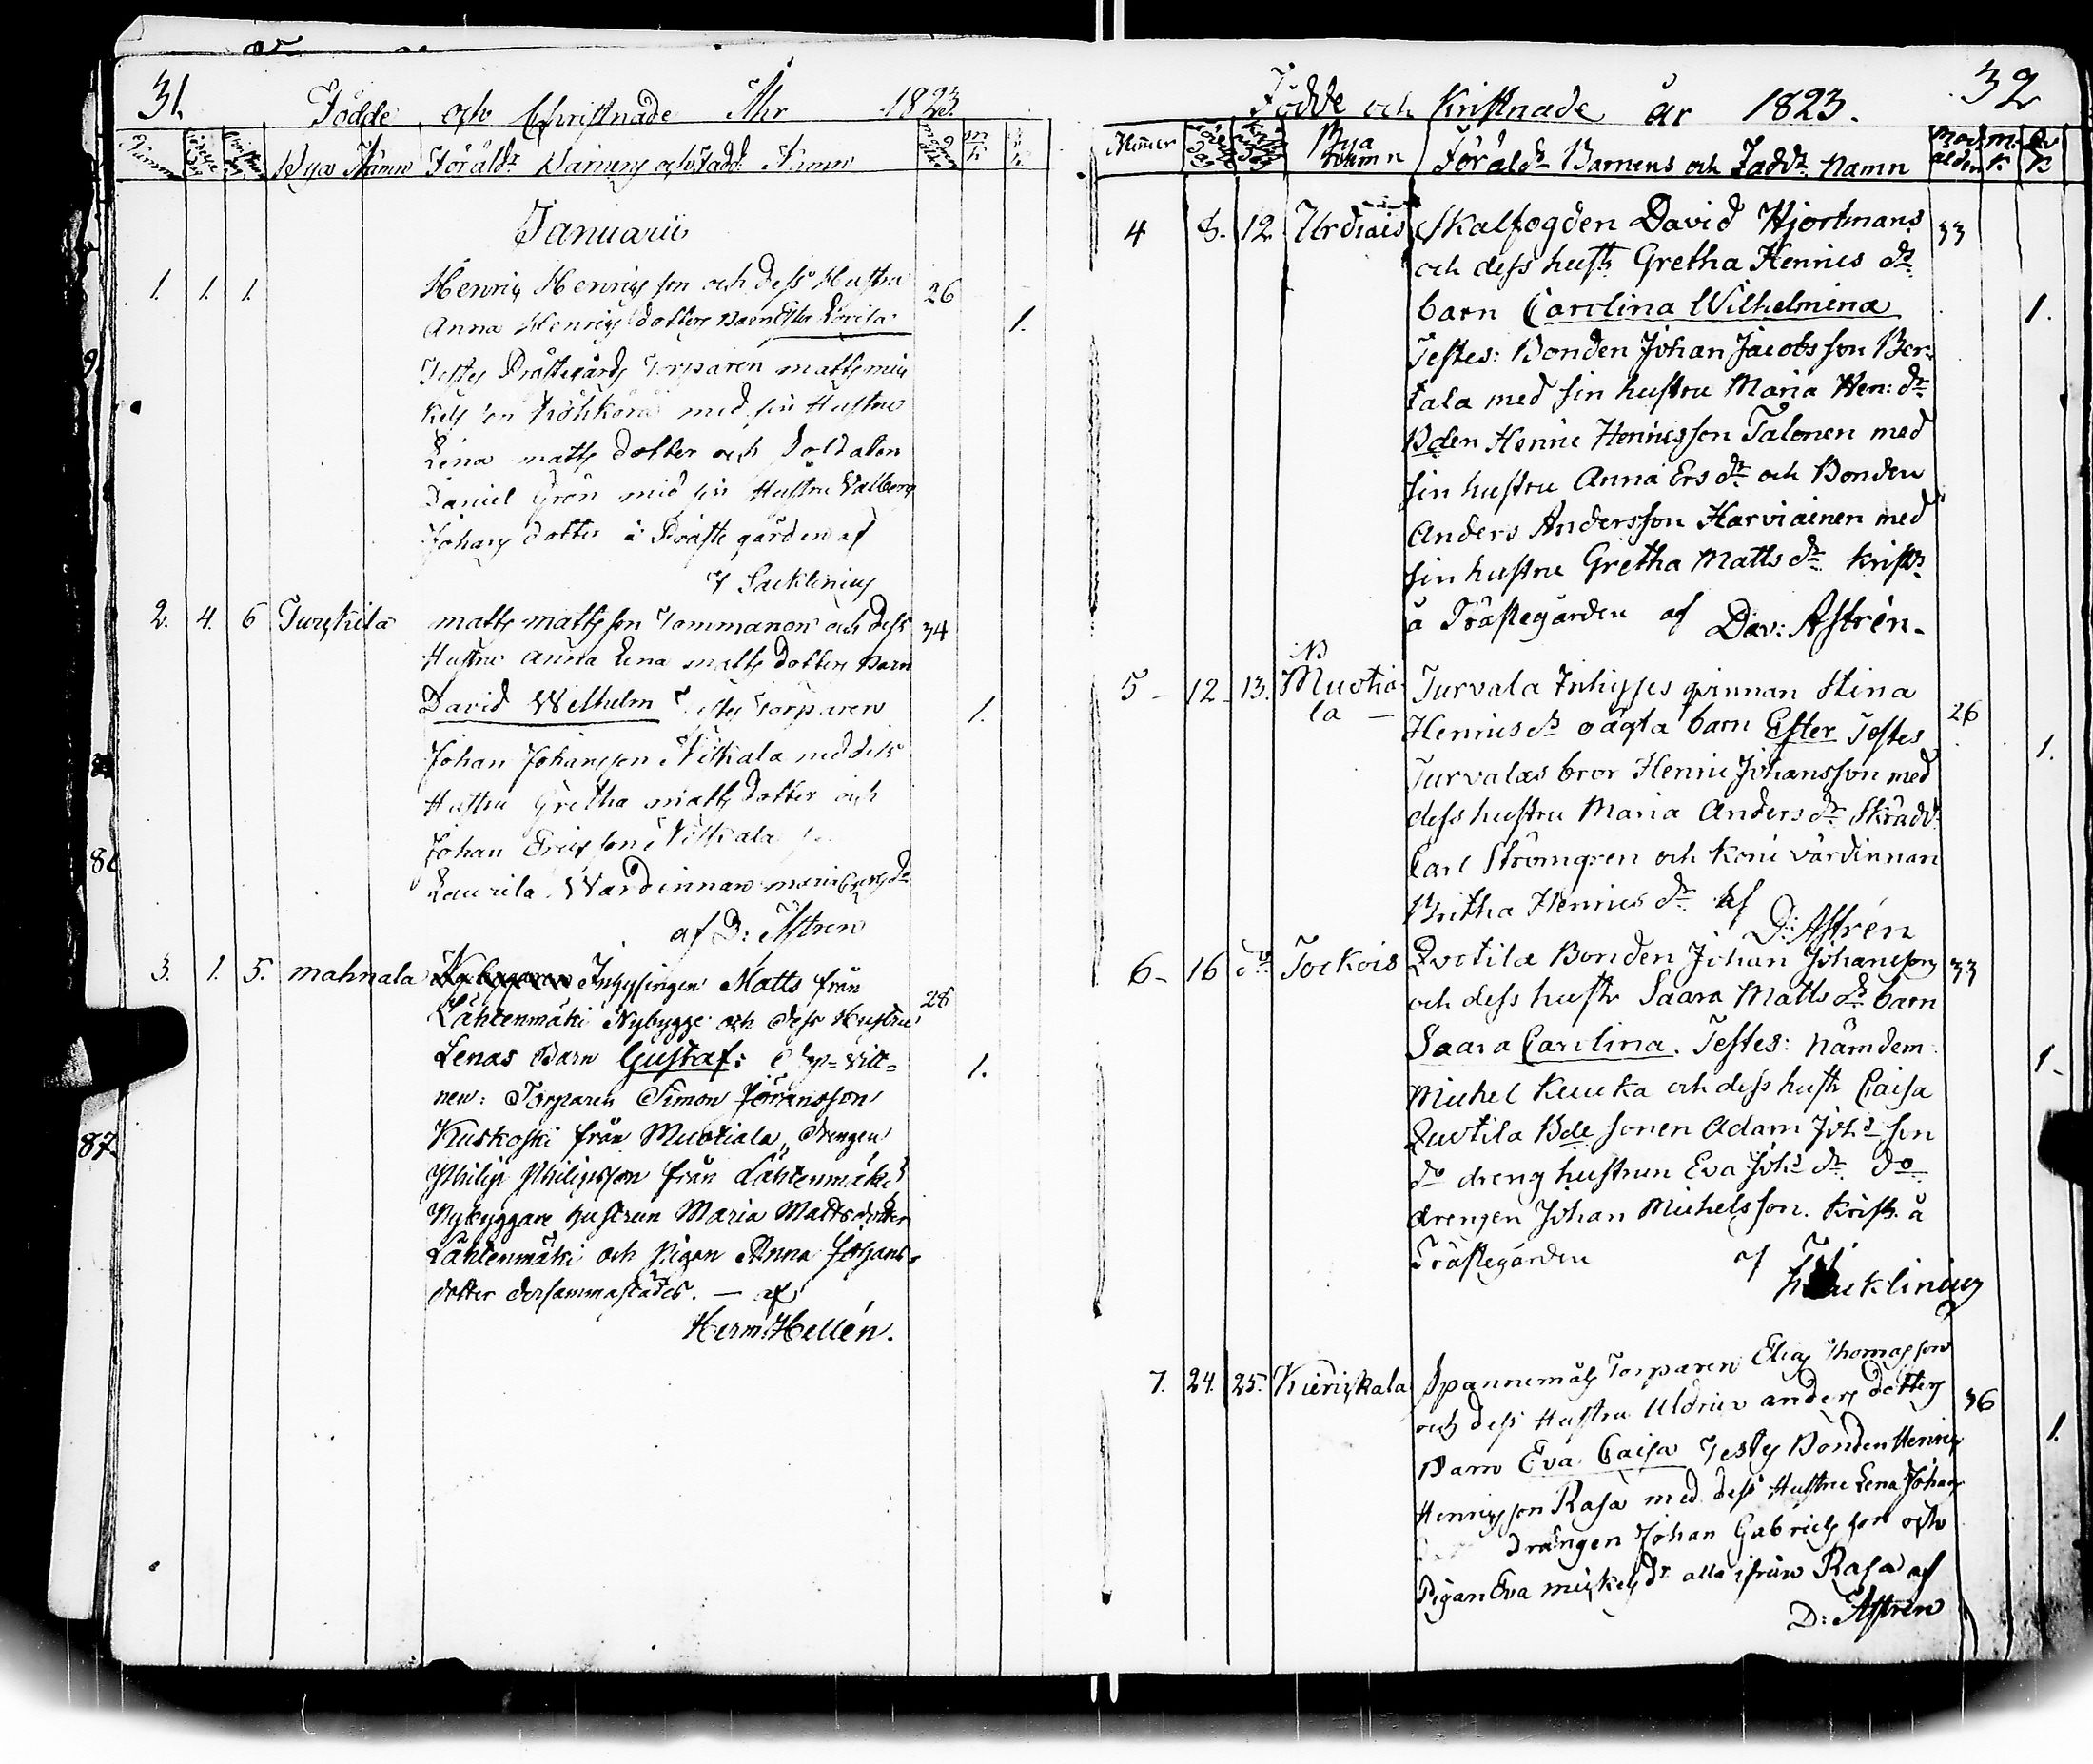 31.
Födde och Christnade Åhr 1823.
Bya Namn Föräldr Barnens och Fadd: Namn
Januarii
1. 1. 1. Henric Henrics son och dess Hustru 26
Anna Henrics dotters Barn Ester Lovisa 1.
Testes Prästegårds Torparen Matts Mic
kels son med sin Hustru
Lena Matts dotter och Soldaten
Daniel Grön med sin Hustru Valborg
Johans dotter å Präste gården af
Sacklinius
2. 4. 6 Turskila Matts Mattsson Tommanon och dess 34
Hustru Anna Lena Matts dotters Barn
David Wilhelm Testes Torparen 1.
Johan Johansson Nitkala med dess
Hustru Gretha Matts dotter och
Johan Ericsson Nitkala
Laurila Wärdinnan
af D: Astren
3. 1. 5. Mahnala Inhysingen Matts från 28
Lähtenmäki Nybygge och dess Hustru
Lenas Barn Gustaf: Dop-vitt- 1.
nen: Torparen Simon Göransson
Kuskoski från Muotiala, drengen
Philip Philipsson från Lähtenmäki
Nybyggare hustrun Maria Mattsdotter
Lähtenmäki och Pigan Anna Johans-
dotter dersammastädes. — af
Herm: Hellén.
32
Födde och Kristnade år 1823.
Numer Bya namn Föräldr Barnens och Faddr namn
4 8. 12 Urdiais Skalfogden David Hjortmans 33
och dess hustr Gretha Henrics dr
barn Carolina Wilhelmina 1.
Testes: Bonden Johan Jacobsson Ber-
tala med sin hustru Maria Hen: dr
Bden Henric Henricsson Talonen med
sin hustru Anna Ers dr och Bonden
Anders Andersson Harviainen med
sin hustru Gretha Matts dr Kristn
å Prästegården af Dav: Astrén.
5 - 12 - 13. Muotia- Turvala Inhysses qvinnan Stina
la - Henrics dr oägta barn Ester Testes 26
Turvalas bror Henric Johansson med 1.
dess hustru Maria Anders dr Skrädd:
Carl Strömgren och Koni värdinnan
Britha Henrics dr af
D: Astrén
6 - 16 do Tockois Qvotila Bonden Johan Johansson 33
och dess hustr Saara Matts dr barn
Saara Carolina. Testes: Nämdem: 1-
Michel Keucka och dess hustr Caisa
Quotila Bde sonen Adam Johs son
do dreng hustrun Eva Johs dr do
drengen Johan Michelsson. Kristn. å
Prästegården af
Sacklinius
7. 24. 25. Kieriskala Spannemäs Torparen Elias Thomasson
och dess Hustru Uldrica Anders dotters 36
Barn Eva Caisa Testes Bonden Henric 1.
Henricsson Rasa med dess Hustru Lena Johans
Drängen Johan Gabriels son och
Pigan Eva Mickels dr alla ifrån Rasa af
D: Astrén